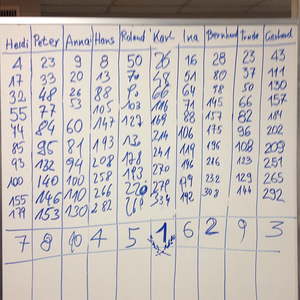 Heidi Peter Anna Hans Roland Karl Ina Bernhard Trude Gerhard
4 23 9 8 50 26 16 28 23 43
17 33 20 13 70 51 80 37 111
32 48 26 88 64 98 50 130
55 77 53 105 71 145 66 157
74 84 60 147 123 169 88 157 82 181
85 95 81 193 214 106 175 96 202
93 132 94 208 178 241 119 196 108 209
100 140 100 258 193 270 196 216 123 251
155 146 110 266 220 232 129 265
179 153 130 282 334 192 308 144 292
7 8 10 4 5 1 6 2 9 3